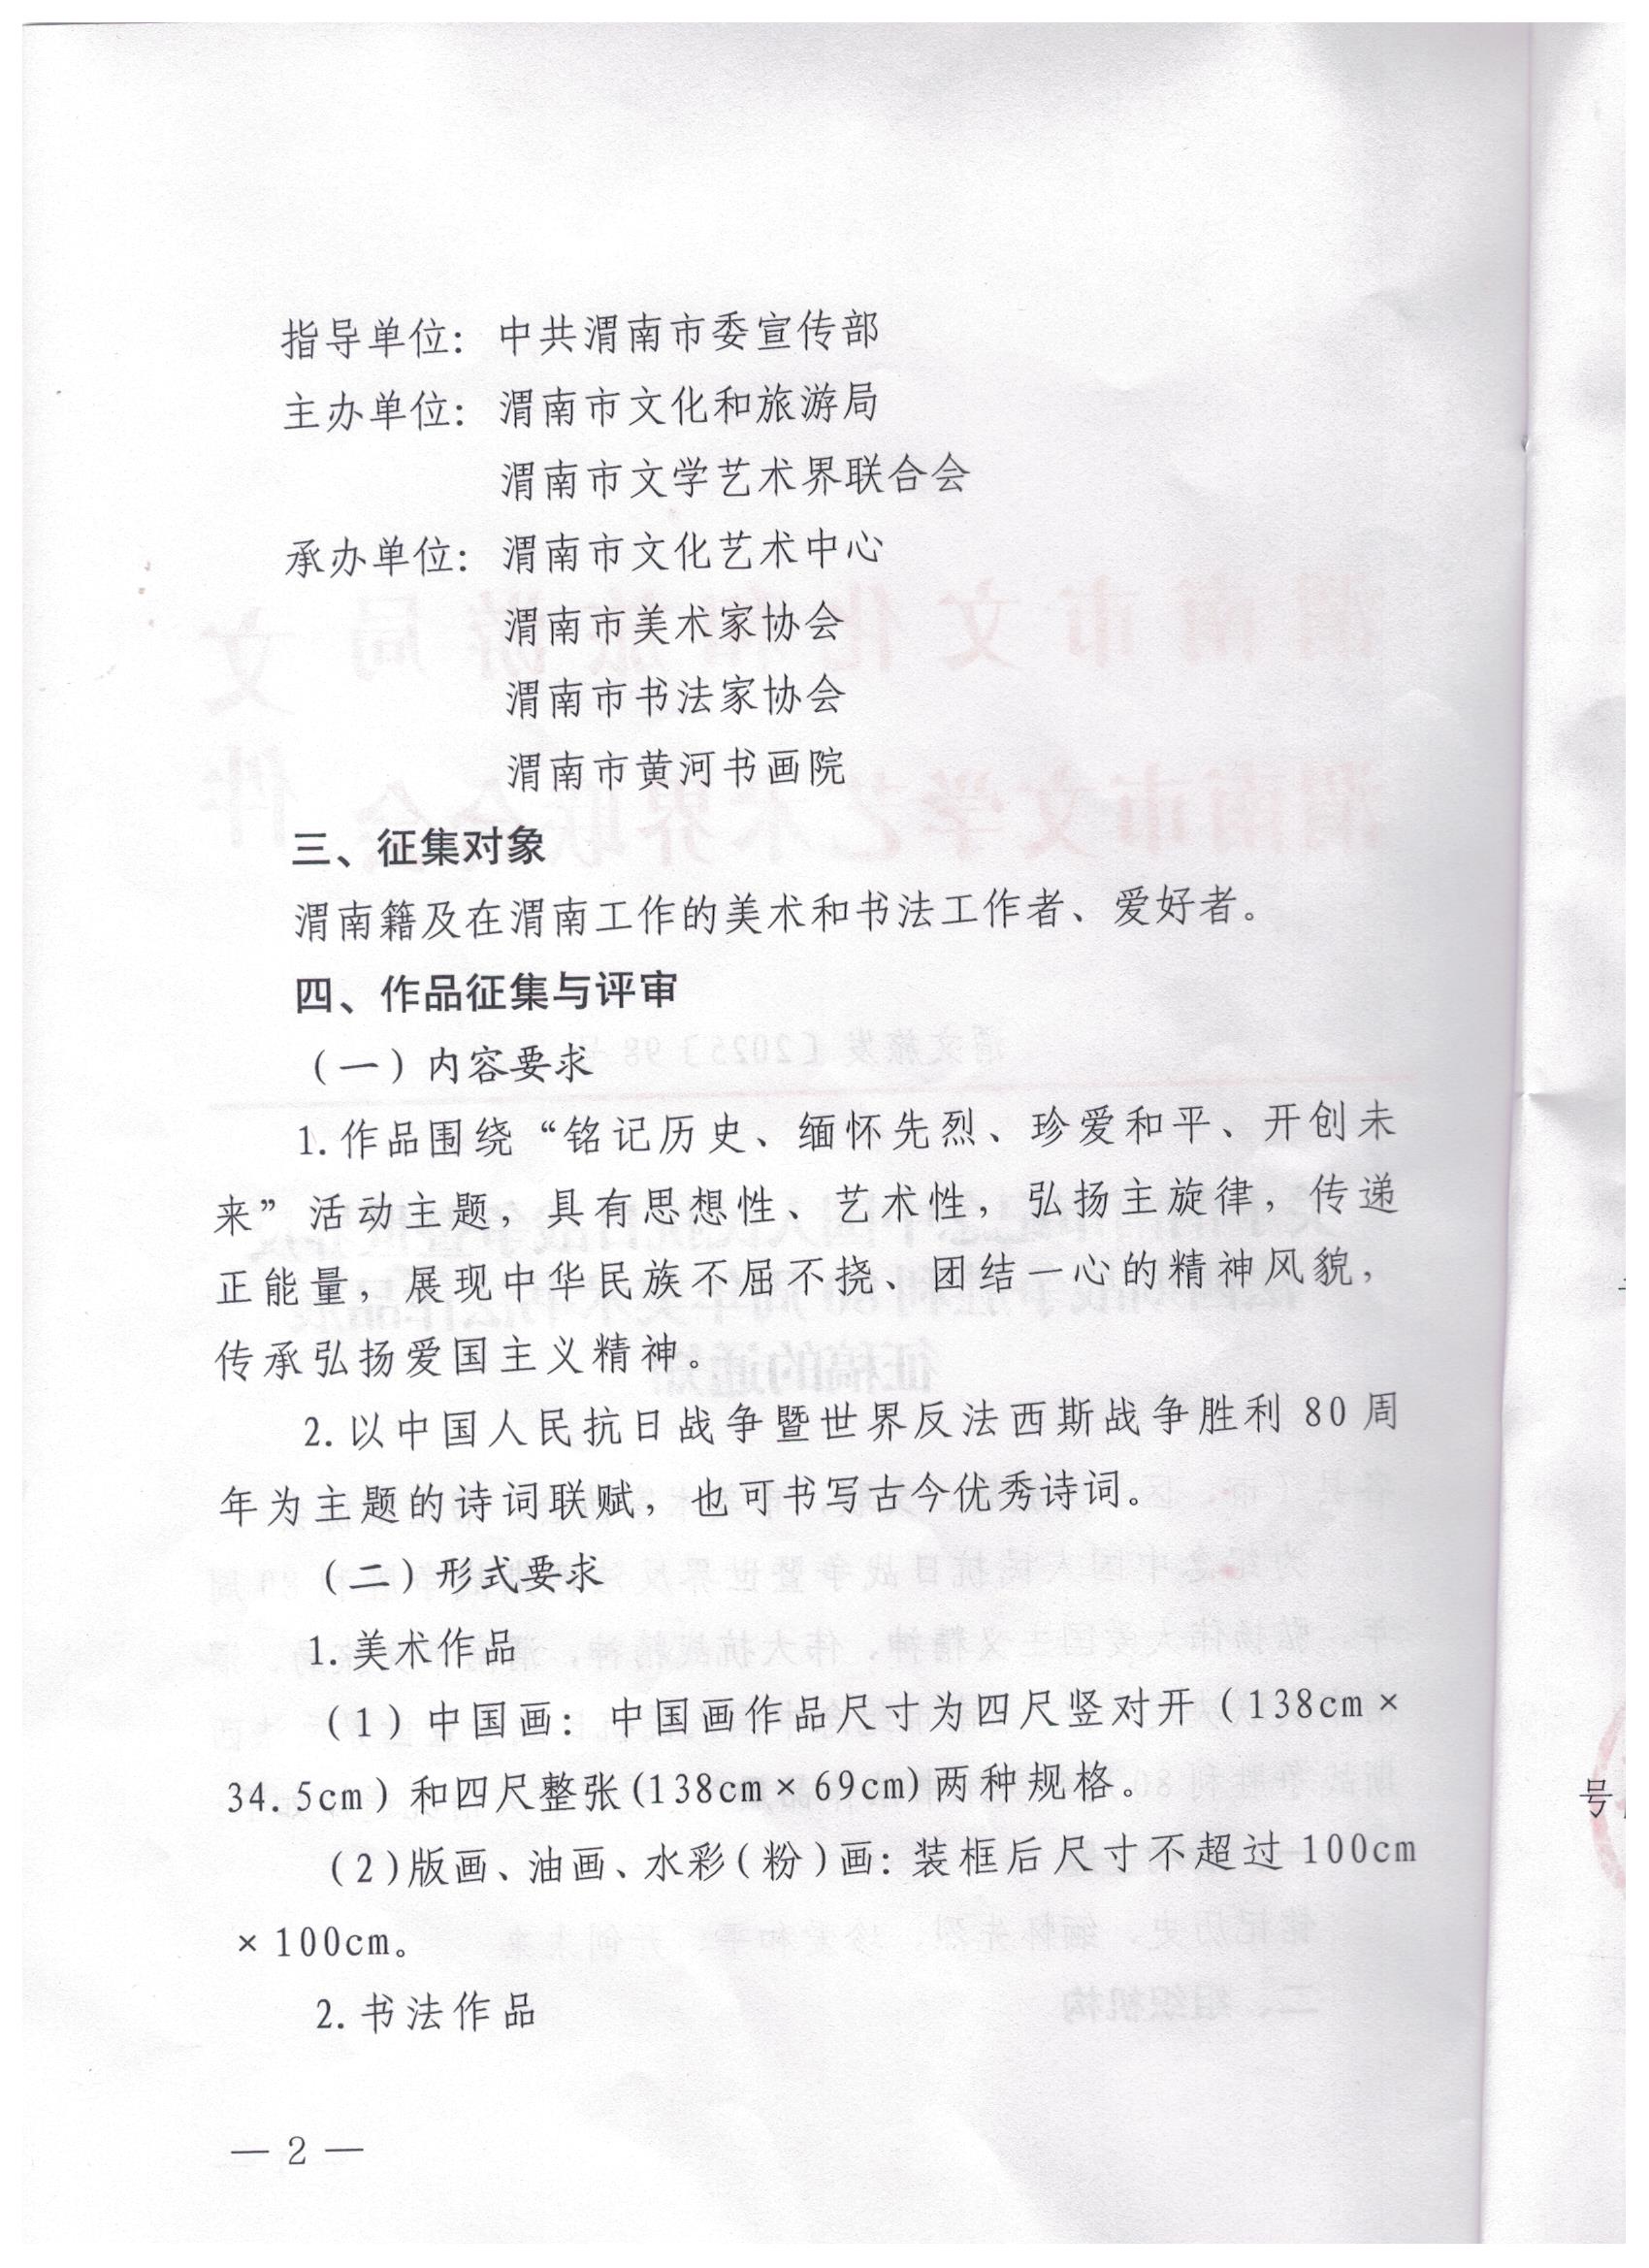 指导单位：中共渭南市委宣传部
主办单位：渭南市文化和旅游局
渭南市文学艺术界联合会
承办单位：渭南市文化艺术中心
渭南市美术家协会
渭南市书法家协会
渭南市黄河书画院
三、征集对象
渭南籍及在渭南工作的美术和书法工作者、爱好者。
四、作品征集与评审
（一）内容要求
1.作品围绕“铭记历史、缅怀先烈、珍爱和平、开创未
来”活动主题，具有思想性、艺术性，弘扬主旋律，传递
正能量，展现中华民族不屈不挠、团结一心的精神风貌，
传承弘扬爱国主义精神。
2.以中国人民抗日战争暨世界反法西斯战争胜利80周
年为主题的诗词联赋，也可书写古今优秀诗词。
（二）形式要求
1.美术作品
（1）中国画：中国画作品尺寸为四尺竖对开（138cm×
34.5cm）和四尺整张(138cm×69cm)两种规格。
（2)版画、油画、水彩（粉）画：装框后尺寸不超过100cm
×100cm。
2.书法作品
— 2 —
号